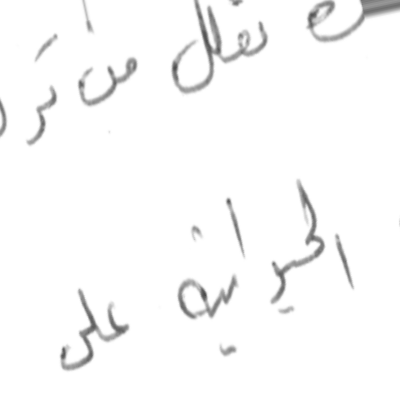 تقلل من
الحيوانية على